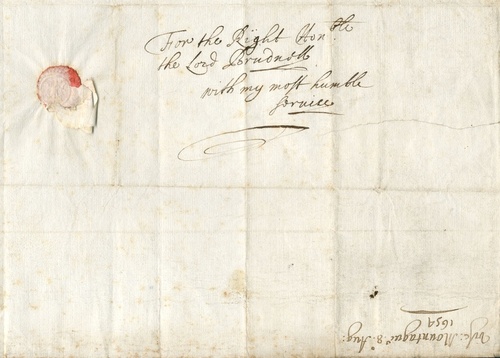 For the Right Hon:ble
the Lord Brudnell
with my most humble
service
Visc: Mountagu's 8. Aug:
1659